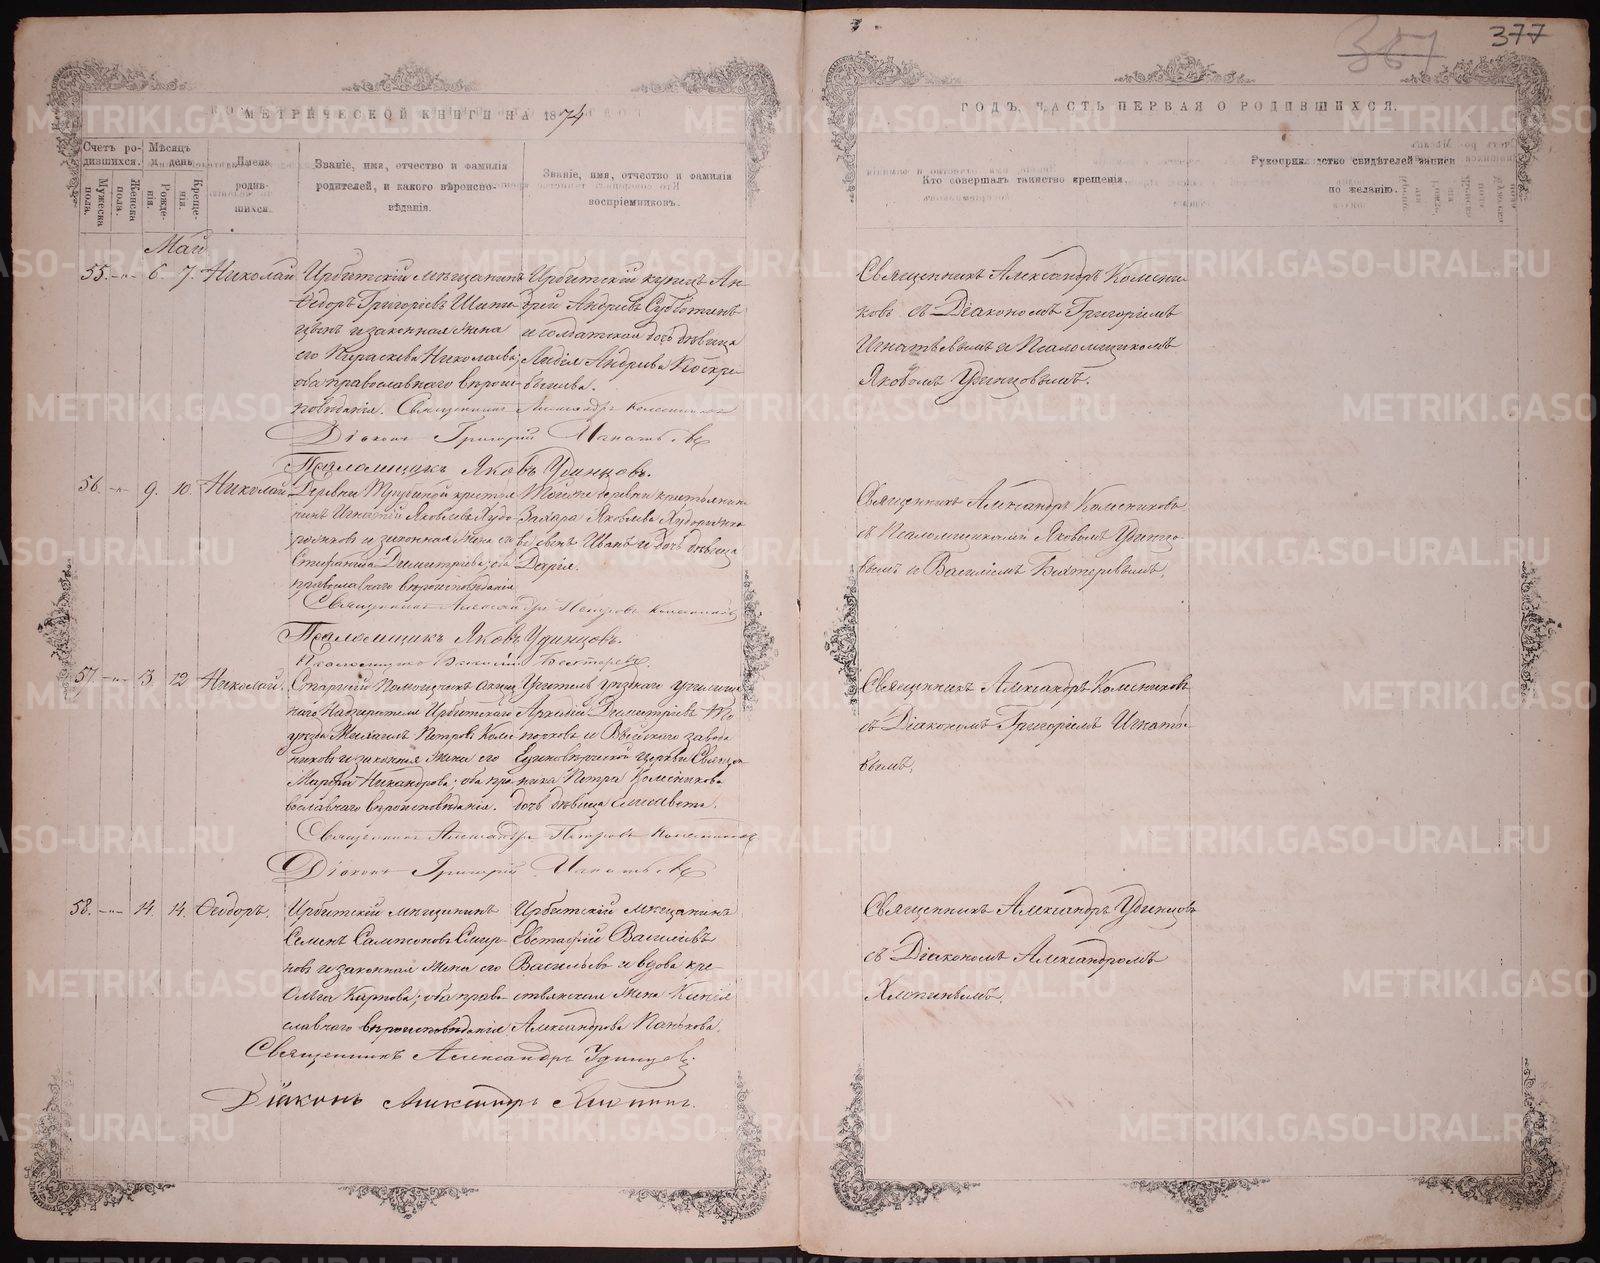 377
МЕТРИЧЕСКОЙ КНИГИ НА 1874
ГОДЪ, ЧАСТЬ ПЕРВАЯ О РОДИВШИХСЯ.
Счетъ родившихся.
Мужеска пола.
Женска пола.
Мѣсяцъ и день
Рожденія.
Крещенія.
Имена родившихся.
Званіе, имя, отчество и фамилія родителей, и какого вѣроисповѣданія.
Званіе, имя, отчество и фамилія воспріемниковъ.
Кто совершалъ таинство крещенія.
Рукоприкладство свидѣтелей записи по желанію.
Май
55. -"- 6. 7. Николай
Ирбитскій мѣщанинъ
Ѳедоръ Григорьевъ Шипи-
цынъ и законная жена
его Параскева Николаева;
оба православнаго вѣроис-
повѣданія.
Ирбитскій купецъ Ан-
дрей Андреевъ Субботинъ
и солдатская дочь дѣвица
Лидія Андреева
Священникъ Александръ Колесни-
ковъ съ Діакономъ Григоріемъ
Игнатьевымъ и Псаломщикомъ
Яковомъ Удинцовымъ.
Священникъ Александръ Колесниковъ
Діаконъ Григорій Игнатьевъ
Псаломщикъ Яковъ Удинцовъ.
56. -"- 9. 10. Николай
Деревни Трубиной крестья-
нинъ Игнатій Яковлевъ Худо-
рожковъ и законная жена его
Стефанида Димитріева; оба
православнаго вѣроисповѣданія
Тойже деревни крестьянина
Захара Яковлева Худорожко-
ва сынъ Иванъ и дочь дѣвица
Дарія.
Священникъ Александръ Колесниковъ
съ Псаломщиками Яковомъ Удинцо-
вымъ и Василіемъ Бехтеревымъ.
Священникъ Александръ Петровъ Колесниковъ
Псаломщикъ Яковъ Удинцовъ.
Псаломщикъ Василій Бехтеревъ.
57. -"- 13. 12. Николай.
Старшій Помощникъ Акциз-
наго Надзирателя Ирбитскаго
уѣзда Михаилъ Петровъ Колес-
никовъ и законная жена его
Марфа Никандрова; оба пра-
вославнаго вѣроисповѣданія.
Учитель уѣзднаго училища
Димитріевъ
и Выйскаго завода
Единовѣрческой церкви Священ-
ника Петра Колесникова
дочь дѣвица Елисавета.
Священникъ Александръ Колесниковъ
съ Діакономъ Григоріемъ Игнатье-
вымъ.
Священникъ Александръ Петровъ Колесниковъ
Діаконъ Григорій Игнатьевъ
58. -"- 14. 14. Ѳеодоръ.
Ирбитскій мѣщанинъ
Семенъ Сампсоновъ Смир-
новъ и законная жена его
Ольга Карпова; оба право-
славнаго вѣроисповѣданія
Ирбитскій мѣщанинъ
Евстафій Василіевъ
Васильевъ и вдова кре-
стьянская жена Ксенія
Александрова Панькова.
Священникъ Александръ Удинцовъ
съ Діакономъ Александромъ
Хлопинымъ.
Священникъ Александръ Удинцовъ.
Діаконъ Александръ Хлопинъ.
METRIKI.GASO-URAL.RU